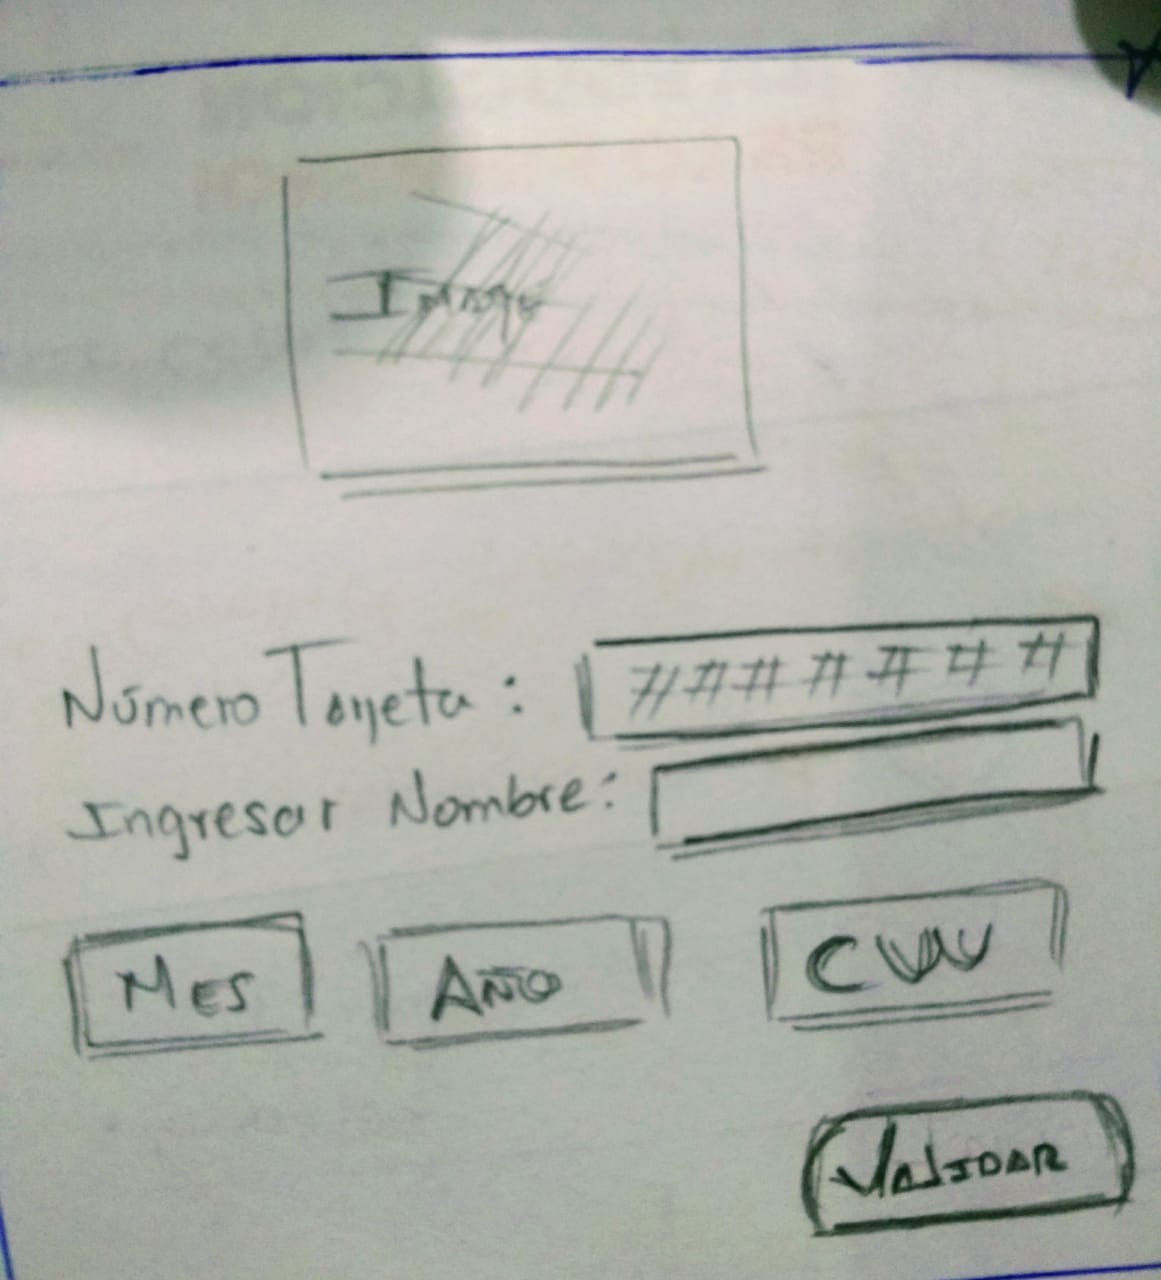 Image
Número Tarjeta: #######
Ingresar Nombre:
MES AÑO CVV
VALIDAR